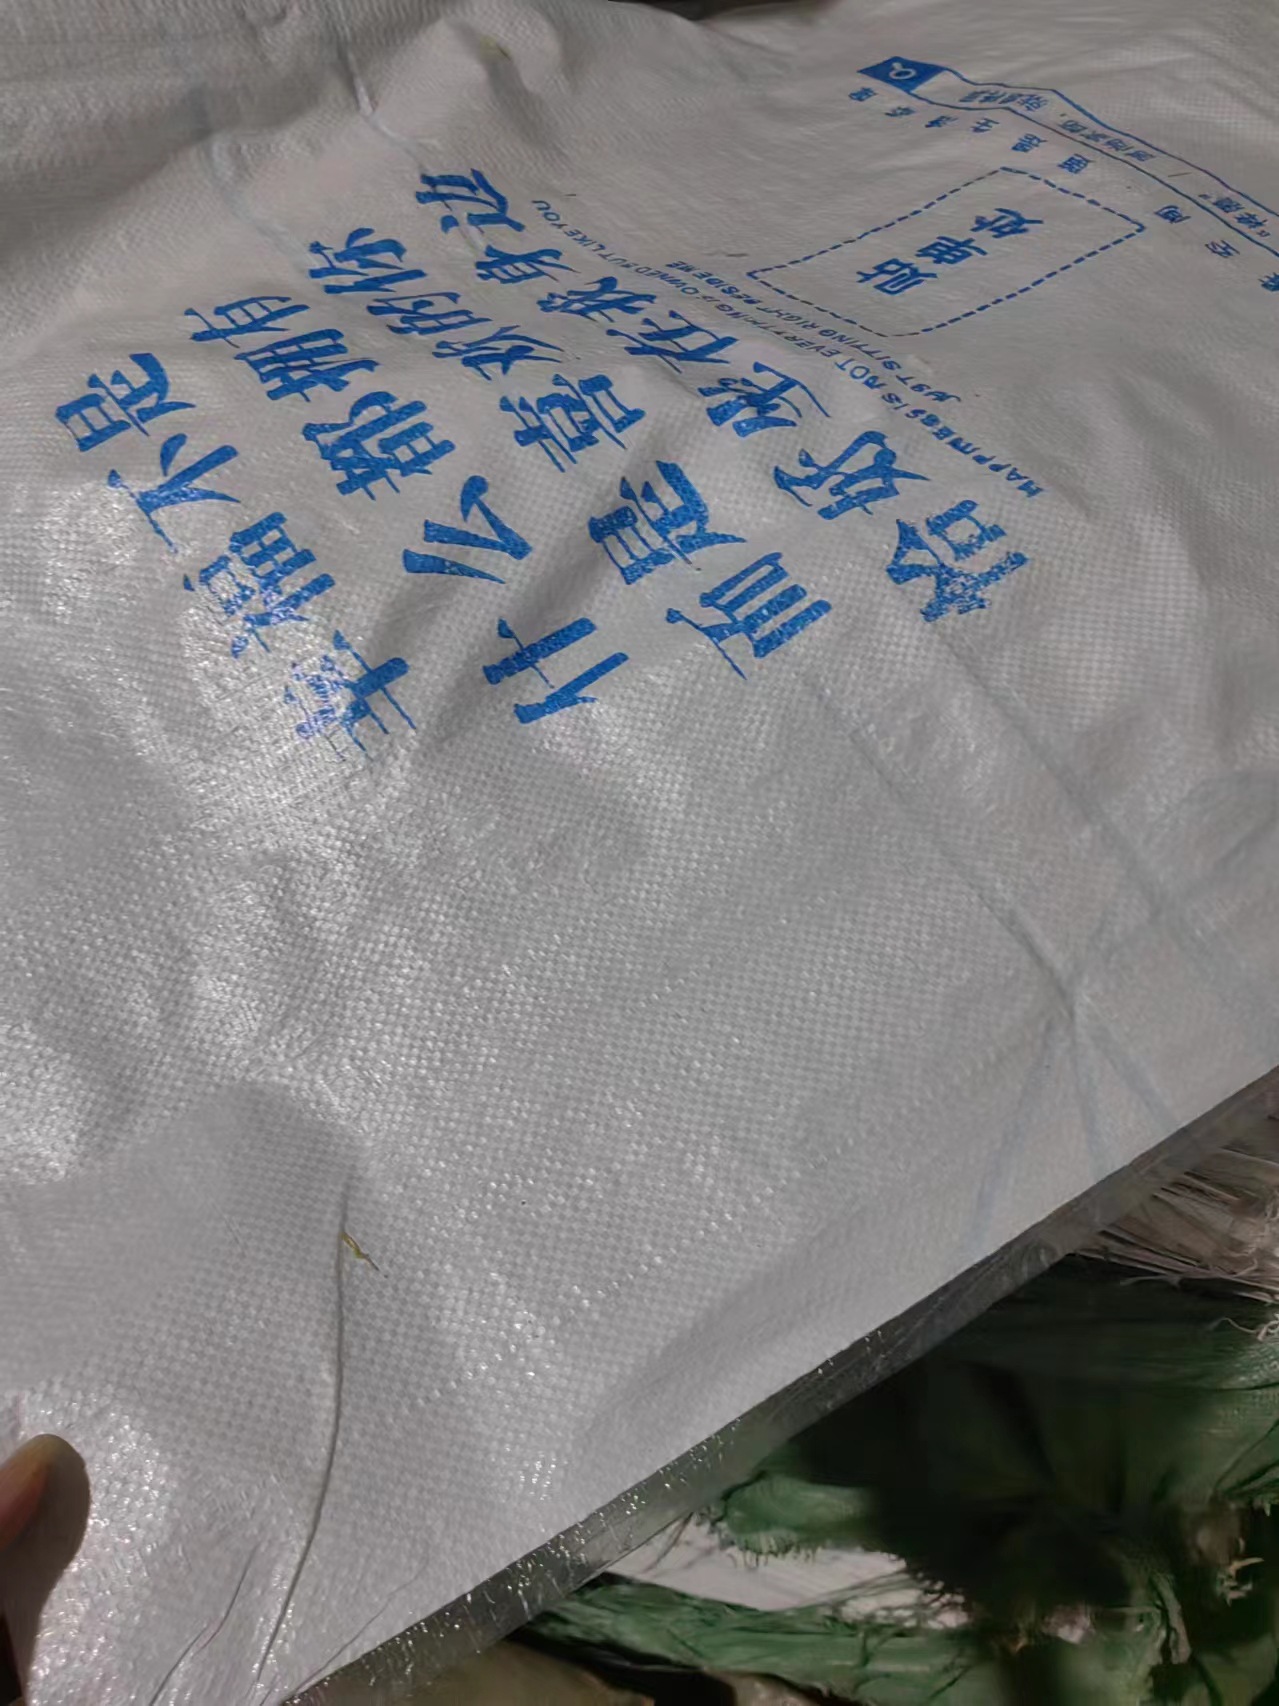 幸福不是
什么都拥有
而是喜欢的你
恰好坐在我身边
HAPPINESS IS NOT EVERYTHING IS OWNED BUT LIKE YOU
JUST SITTING RIGHT BESIDE ME
贴单处